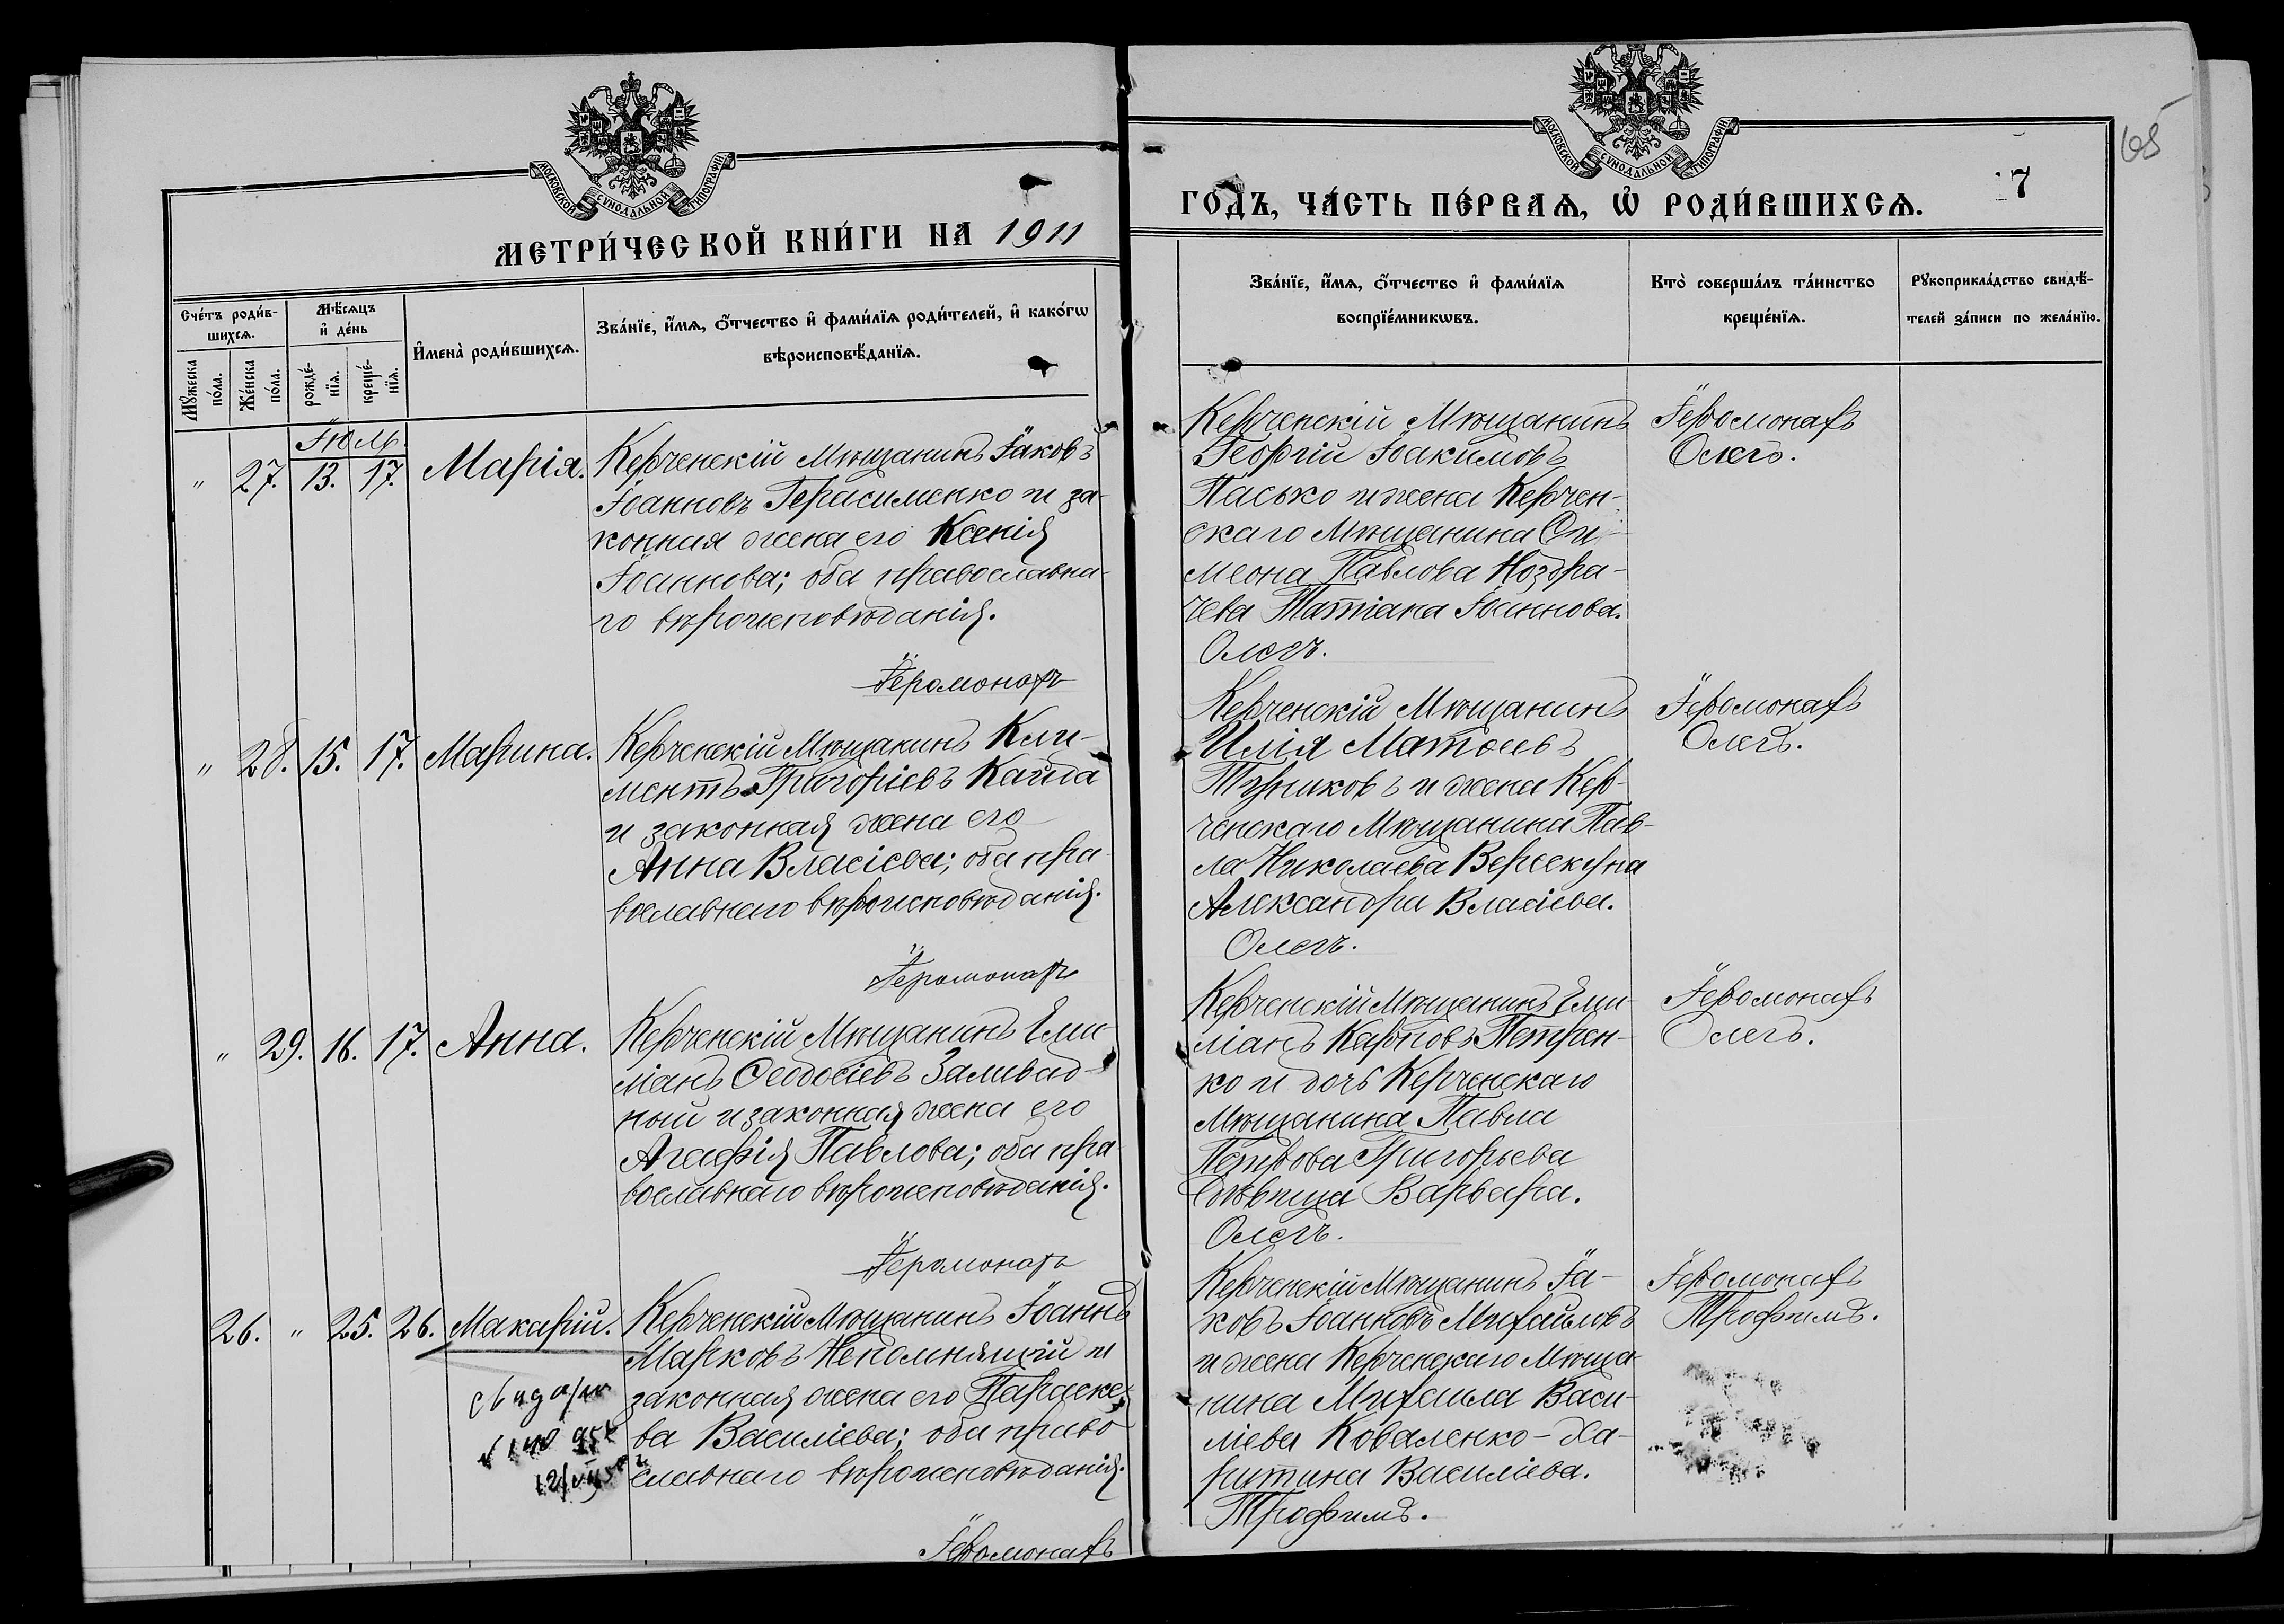 МОСКОВСКОЙ СѴНОДАЛЬНОЙ ТИПОГРАФІИ
МЕТРИ́ЧЕСКОЙ КНИ́ГИ НА 1911
Сче́тъ роди́в-
шихсѧ.
Мꙋ́жеска
по́ла.
Же́нска
по́ла.
Мѣ́сѧцъ
и҆ де́нь
рожде́-
нїѧ.
креще́-
нїѧ.
И҆мена̀ роди́вшихсѧ.
Зва́нїе, и҆́мѧ, ѻ҆́тчество и҆ фами́лїѧ роди́телей, и҆ како́гѡ
вѣроисповѣ́данїѧ.
Іюль.
" 27. 13. 17. Марія.
Керченскій Мѣщанинъ Іаковъ
Іоанновъ Герасименко и за-
конная жена его Ксенія
Іоаннова; оба православна-
го вѣроисповѣданія.
Іеромонахъ
" 28. 15. 17. Марина.
Керченскій Мѣщанинъ Кли-
ментъ Григоріевъ Кайда
и законная жена его
Анна Власіева; оба пра-
вославнаго вѣроисповѣданія.
Іеромонахъ
" 29. 16. 17. Анна.
Керченскій Мѣщанинъ Еми-
ліанъ Ѳеодосіевъ Заливад-
ный и законная жена его
Агафія Павлова; оба пра-
вославнаго вѣроисповѣданія.
Іеромонахъ
26. " 25. 26. Макарій.
Керченскій Мѣщанинъ Іоаннъ
Марковъ Непомнящій и
законная жена его Параске-
ва Василіева; оба право-
славнаго вѣроисповѣданія.
Іеромонахъ
МОСКОВСКОЙ СѴНОДАЛЬНОЙ ТИПОГРАФІИ
65
7
ГО́ДЪ, ЧА́СТЬ ПЕ́РВАѦ, Ѡ҆ РОДИ́ВШИХСѦ.
Зва́нїе, и҆́мѧ, ѻ҆́тчество и҆ фами́лїѧ
воспрїе́мникѡвъ.
Кто̀ соверша́лъ та́инство
креще́нїѧ.
Рꙋкоприкла́дство свидѣ́-
телей за́писи по жела́нїю.
Керченскій Мѣщанинъ
Георгій Іоакимовъ
Пасько и жена Керчен-
скаго Мѣщанина Си-
меона Павлова Ноздра-
чева Татіана Іоаннова.
Олегъ.
Іеромонахъ
Олегъ.
Керченскій Мѣщанинъ
Илія Матѳеевъ
Турчиковъ и жена Кер-
ченскаго Мѣщанина Пав-
ла Николаева Версекуна
Александра Власіева.
Олегъ.
Іеромонахъ
Олегъ.
Керченскій Мѣщанинъ Еми-
ліанъ Карповъ Петрен-
ко и дочь Керченскаго
Мѣщанина Павла
Петрова Григорьева
дѣвица Варвара.
Олегъ.
Іеромонахъ
Олегъ.
Керченскій Мѣщанинъ Іа-
ковъ Іоанновъ Михайловъ
и жена Керченскаго Мѣща-
нина Михаила Васи-
ліева Коваленко - Ха-
ритина Василіева.
Трофимъ.
Іеромонахъ
Трофимъ.